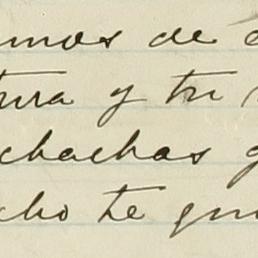 mos de
tura y tu
chachas
cho te